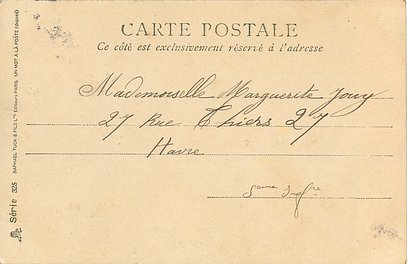 CARTE POSTALE
Ce côté est exclusivement réservé à l'adresse
Mademoiselle Marguerite Jouy
27 Rue Thiers 27
Havre
Seine Infre
Série 325
RAPHAEL TUCK & FILS Lts EDITEURS PARIS. UN MOT A LA POSTE (déposé)